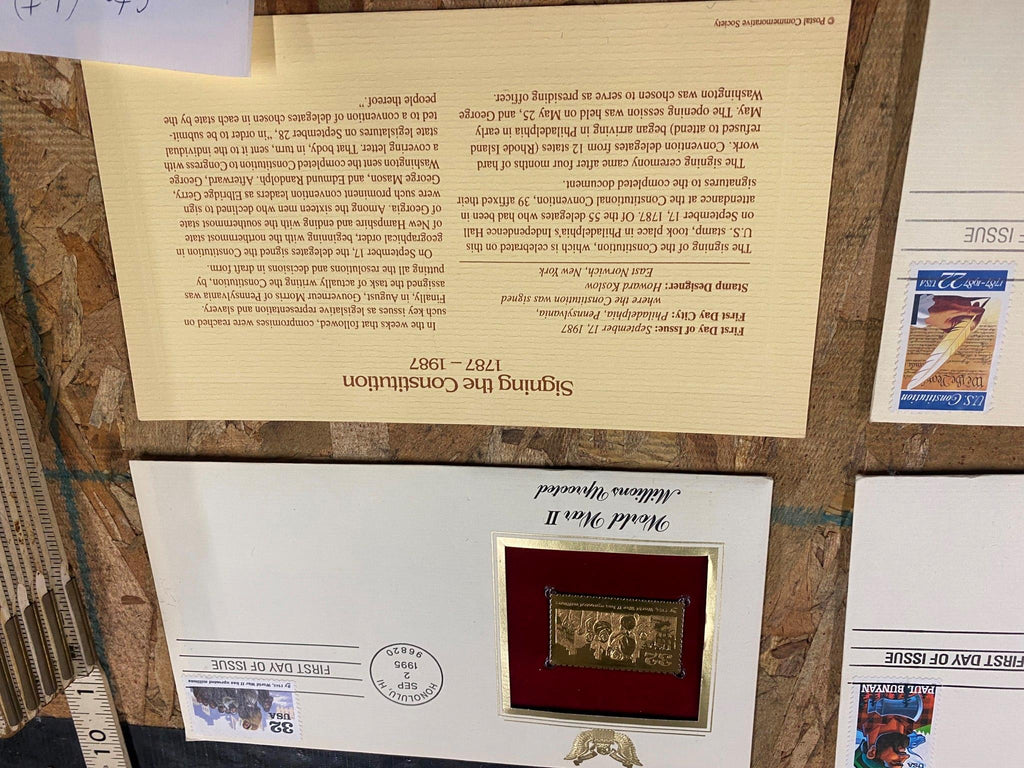 PAUL BUNYAN
USA
FIRST DAY OF ISSUE
32
USA
By 1945, World War II has uprooted millions
FIRST DAY OF ISSUE
HONOLULU, HI
SEP
2
1995
96820
32
By 1945, World War II has uprooted millions
World War II
Millions Uprooted
10
1
U.S. Constitution
We the
1787-1987 USA 22
OF ISSUE
Signing the Constitution
1787 – 1987
First Day of Issue: September 17, 1987
First Day City: Philadelphia, Pennsylvania,
where the Constitution was signed
Stamp Designer: Howard Koslow
East Norwich, New York
The signing of the Constitution, which is celebrated on this
U.S. stamp, took place in Philadelphia's Independence Hall
on September 17, 1787. Of the 55 delegates who had been in
attendance at the Constitutional Convention, 39 affixed their
signatures to the completed document.
The signing ceremony came after four months of hard
work. Convention delegates from 12 states (Rhode Island
refused to attend) began arriving in Philadelphia in early
May. The opening session was held on May 25, and George
Washington was chosen to serve as presiding officer.
In the weeks that followed, compromises were reached on
such key issues as legislative representation and slavery.
Finally, in August, Gouverneur Morris of Pennsylvania was
assigned the task of actually writing the Constitution, by
putting all the resolutions and decisions in draft form.
On September 17, the delegates signed the Constitution in
geographical order, beginning with the northernmost state
of New Hampshire and ending with the southernmost state
of Georgia. Among the sixteen men who declined to sign
were such prominent convention leaders as Elbridge Gerry,
George Mason, and Edmund Randolph. Afterward, George
Washington sent the completed Constitution to Congress with
a covering letter. That body, in turn, sent it to the individual
state legislatures on September 28, "in order to be submit-
ted to a convention of delegates chosen in each state by the
people thereof."
© Postal Commemorative Society